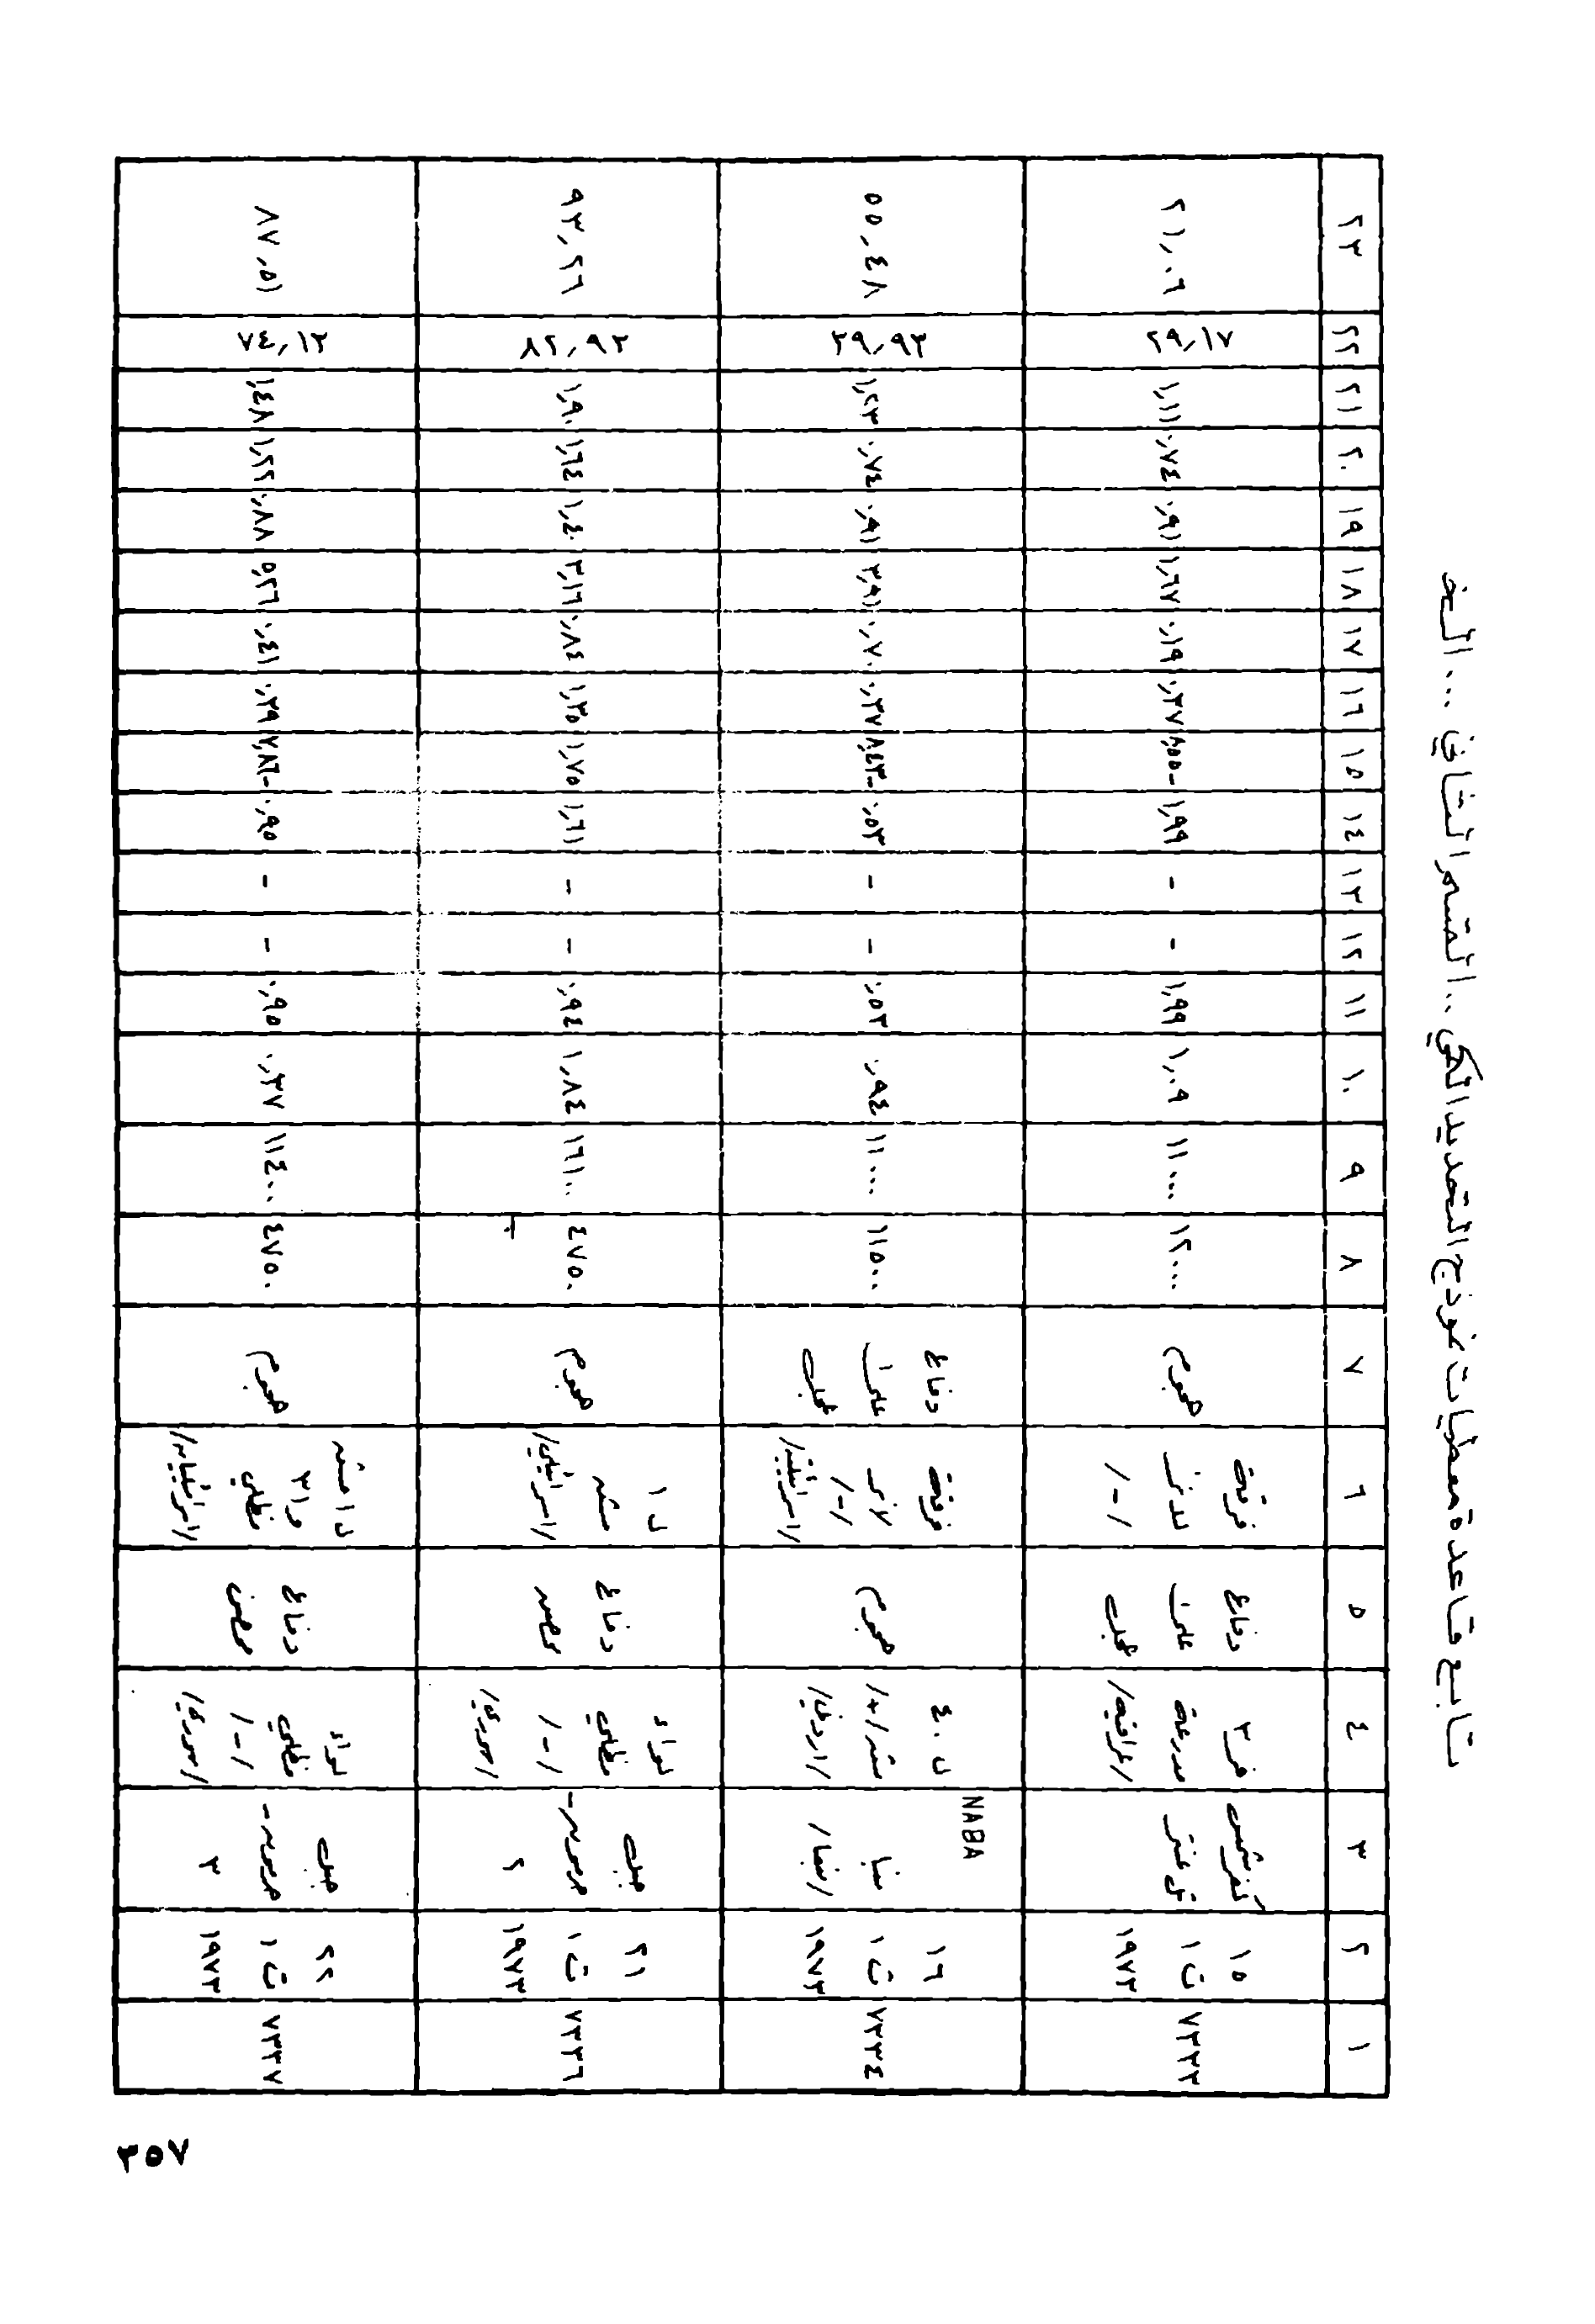 تابع قاعدة معطيات نموذج التحديد الكمي .. القسم الثاني ... الخ
١ ٢ ٣ ٤ ٥ ٦ ٧ ٨ ٩ ١٠ ١١ ١٢ ١٣ ١٤ ١٥ ١٦ ١٧ ١٨ ١٩ ٢٠ ٢١ ٢٢ ٢٣
٧٣٣٣
١٥
ت ١
١٩٧٣
كفر شمس
تل عنتر
فر ٣
مدرعة
/عراقية/
دفاع
على
عجل
فرقة
لانر
/-/
هجوم
١٢٠٠٠
١١٠٠٠
١,٠٩
١,٩٩
-
-
١,٩٩
-٨,٥٥
٠,٣٧
٠,١٩
١,٦٧
٠,٩١
٠,٧٤
١,١١
٢٩,١٧
٢١,٠٦
٧٣٣٤
١٦
ت ١
١٩٧٣
NABA
نبا
/نبعا/
ل ٤٠
مد /+/
/اردني/
هجوم
فرقة
لانر
/-/
/اسرائيلية/
دفاع
على
عجل
١١٥٠٠
١١٠٠٠
٠,٩٤
٠,٥٣
-
-
٠,٥٣
-٨,٤٣
٠,٣٧
٠,٧٠
٣,٩١
٠,٩١
٠,٧٤
١,٢٣
٣٩,٩٣
٥٥,٤٨
٧٣٣٦
٢١
ت ١
١٩٧٣
جبل
حرمون-
٢
لواء
مظلي
/-/
/سوري/
دفاع
محصن
ل ١
مشاة
/اسرائيلي/
هجوم
٤٧٥٠
١٦١٠٠
١,٨٤
٠,٩٤
-
-
١,٦١
١,٧٥
١,٣٥
٠,٨٤
٣,١٦
١,٤٠
١,٦٤
١,٩٠
٨٢,٩٣
٩٣,٢٦
٧٣٣٧
٢٢
ت ١
١٩٧٣
جبل
حرمون-
٣
لواء
مظلي
/-/
/سوري/
دفاع
محصن
ل ١ مشاة
و ٣١
مظلي
/اسرائيليان/
هجوم
٤٧٥٠
١١٤٠٠
٠,٣٧
٠,٩٥
-
-
٠,٩٥
-٧,٨٦
٠,٣٩
٠,٤١
٥,٢٦
٠,٨٨
١,٢٢
١,٤٨
٧٤,١٣
٨٧,٥١
٣٥٧